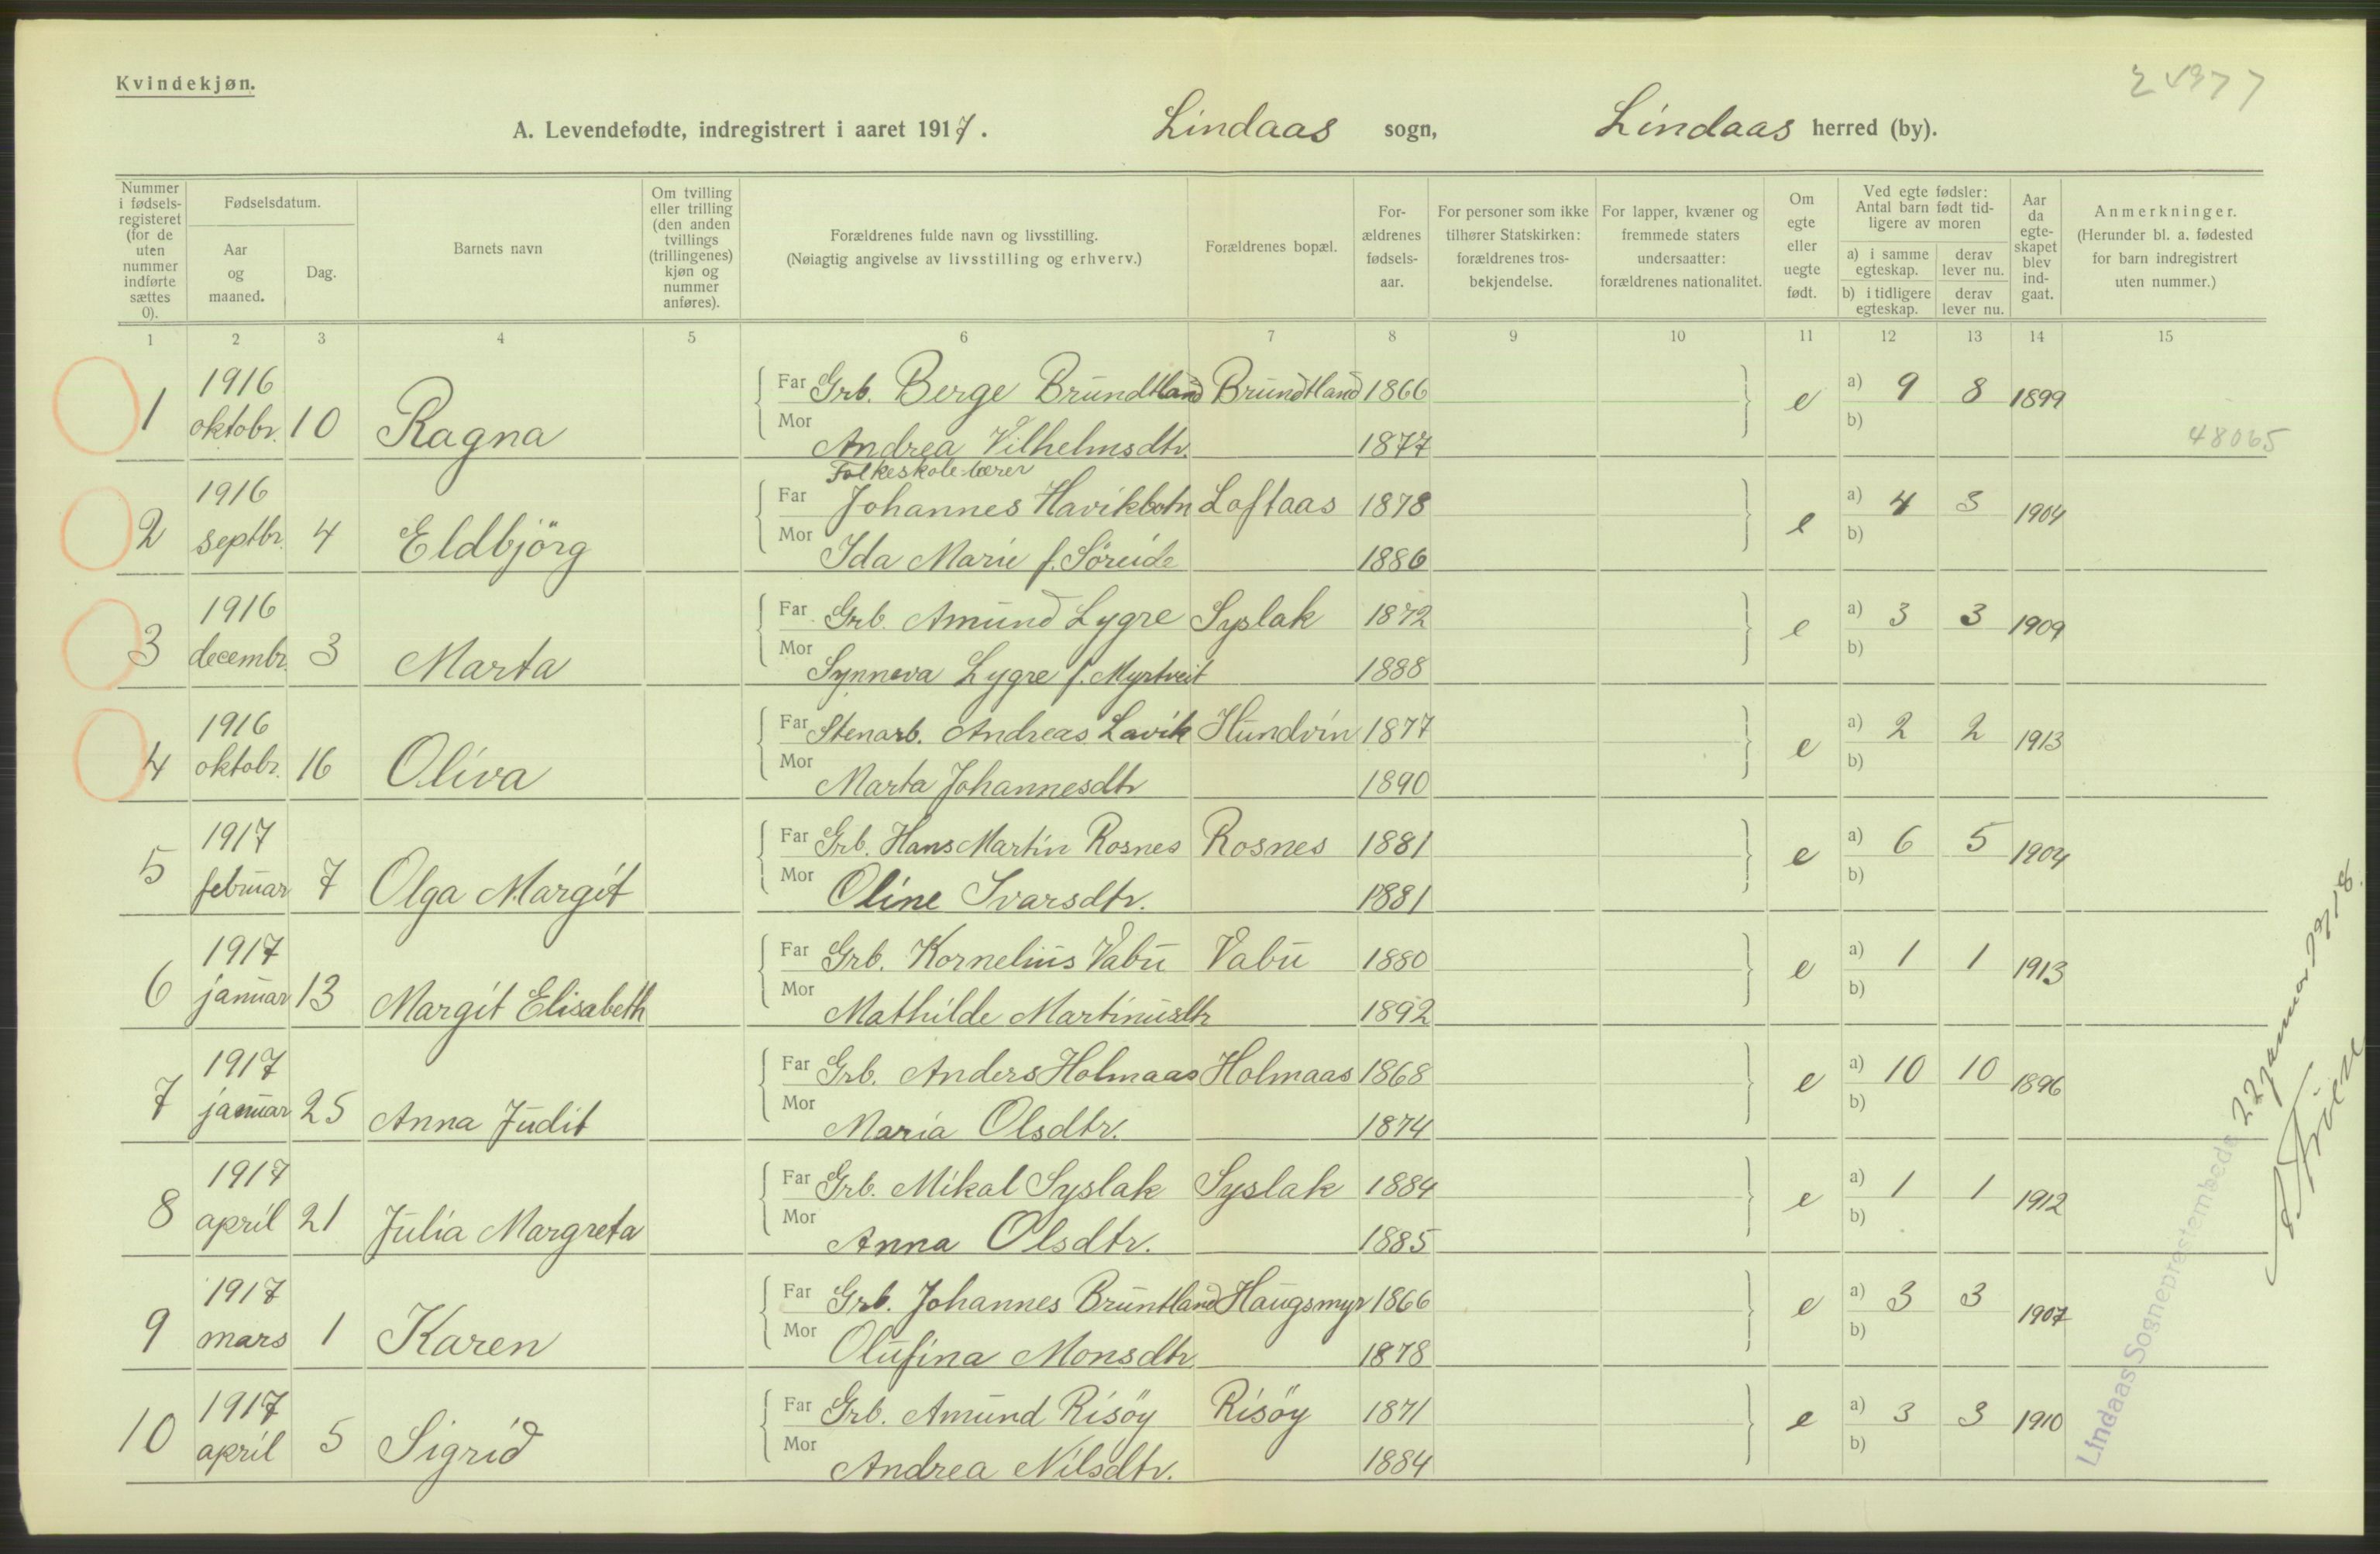 Kvindekjøn.
A. Levendefødte, indregistrert i aaret 1917. Lindaas sogn, Lindaas herred (by).
Nummer i fødsels-registeret (for de uten nummer indførte sættes 0).
Fødselsdatum.
Aar og maaned.
Dag.
Barnets navn
Om tvilling eller trilling (den anden tvillings (trillingenes) kjøn og nummer anføres).
Forældrenes fulde navn og livsstilling.
(Nøiagtig angivelse av livsstilling og erhverv.)
Forældrenes bopæl.
For-ældrenes fødsels-aar.
For personer som ikke tilhører Statskirken: forældrenes tros-bekjendelse.
For lapper, kvæner og fremmede staters undersaatter: forældrenes nationalitet.
Om egte eller uegte født.
Ved egte fødsler: Antal barn født tid-ligere av moren
a) i samme egteskap.
derav lever nu.
b) i tidligere egteskap.
derav lever nu.
Aar da egte-skapet blev ind-gaat.
Anmerkninger.
(Herunder bl. a. fødested for barn indregistrert uten nummer.)
1 2 3 4 5 6 7 8 9 10 11 12 13 14 15
1 1916 oktobr. 10 Ragna Far Grb. Berge Brundtland Brundtland 1866 e a) 9 8 1899
Mor Andrea Vilhelmsdtr. 1877 b) 48065
Folkeskole-lærer
2 1916 septbr. 4 Eldbjörg Far Johannes Havikbotn Loftaas 1878 e a) 4 3 1904
Mor Ida Marie f. Söreide 1886 b)
3 1916 decembr. 3 Marta Far Grb. Amund Lygre Syslak 1872 e a) 3 3 1909
Mor Synneva Lygre f. Myrtveit 1888 b)
4 1916 oktobr. 16 Oliva Far Stenarb. Andreas Lavik Hundvin 1877 e a) 2 2 1913
Mor Marta Johannesdtr 1890 b)
5 1917 februar 7 Olga Margit Far Grb. Hans Martin Rosnes Rosnes 1881 e a) 6 5 1904
Mor Oline Ivarsdtr. 1881 b)
6 1917 januar 13 Margit Elisabeth Far Grb. Kornelius Vabu Vabu 1880 e a) 1 1 1913
Mor Mathilde Martinusdtr 1892 b)
7 1917 januar 25 Anna Judit Far Grb. Anders Holmaas Holmaas 1868 e a) 10 10 1896
Mor Maria Olsdtr. 1874 b)
8 1917 april 21 Julia Margreta Far Grb. Mikal Syslak Syslak 1884 e a) 1 1 1912
Mor Anna Olsdtr. 1885 b)
9 1917 mars 1 Karen Far Grb. Johannes Bruntland Haugsmyr 1866 e a) 3 3 1907
Mor Olufina Monsdtr 1878 b)
10 1917 april 5 Sigrid Far Grb. Amund Risöy Risöy 1871 e a) 3 3 1910
Mor Andrea Nilsdtr. 1884 b)
Lindaas Sogneprestembede 22 januar 1918.